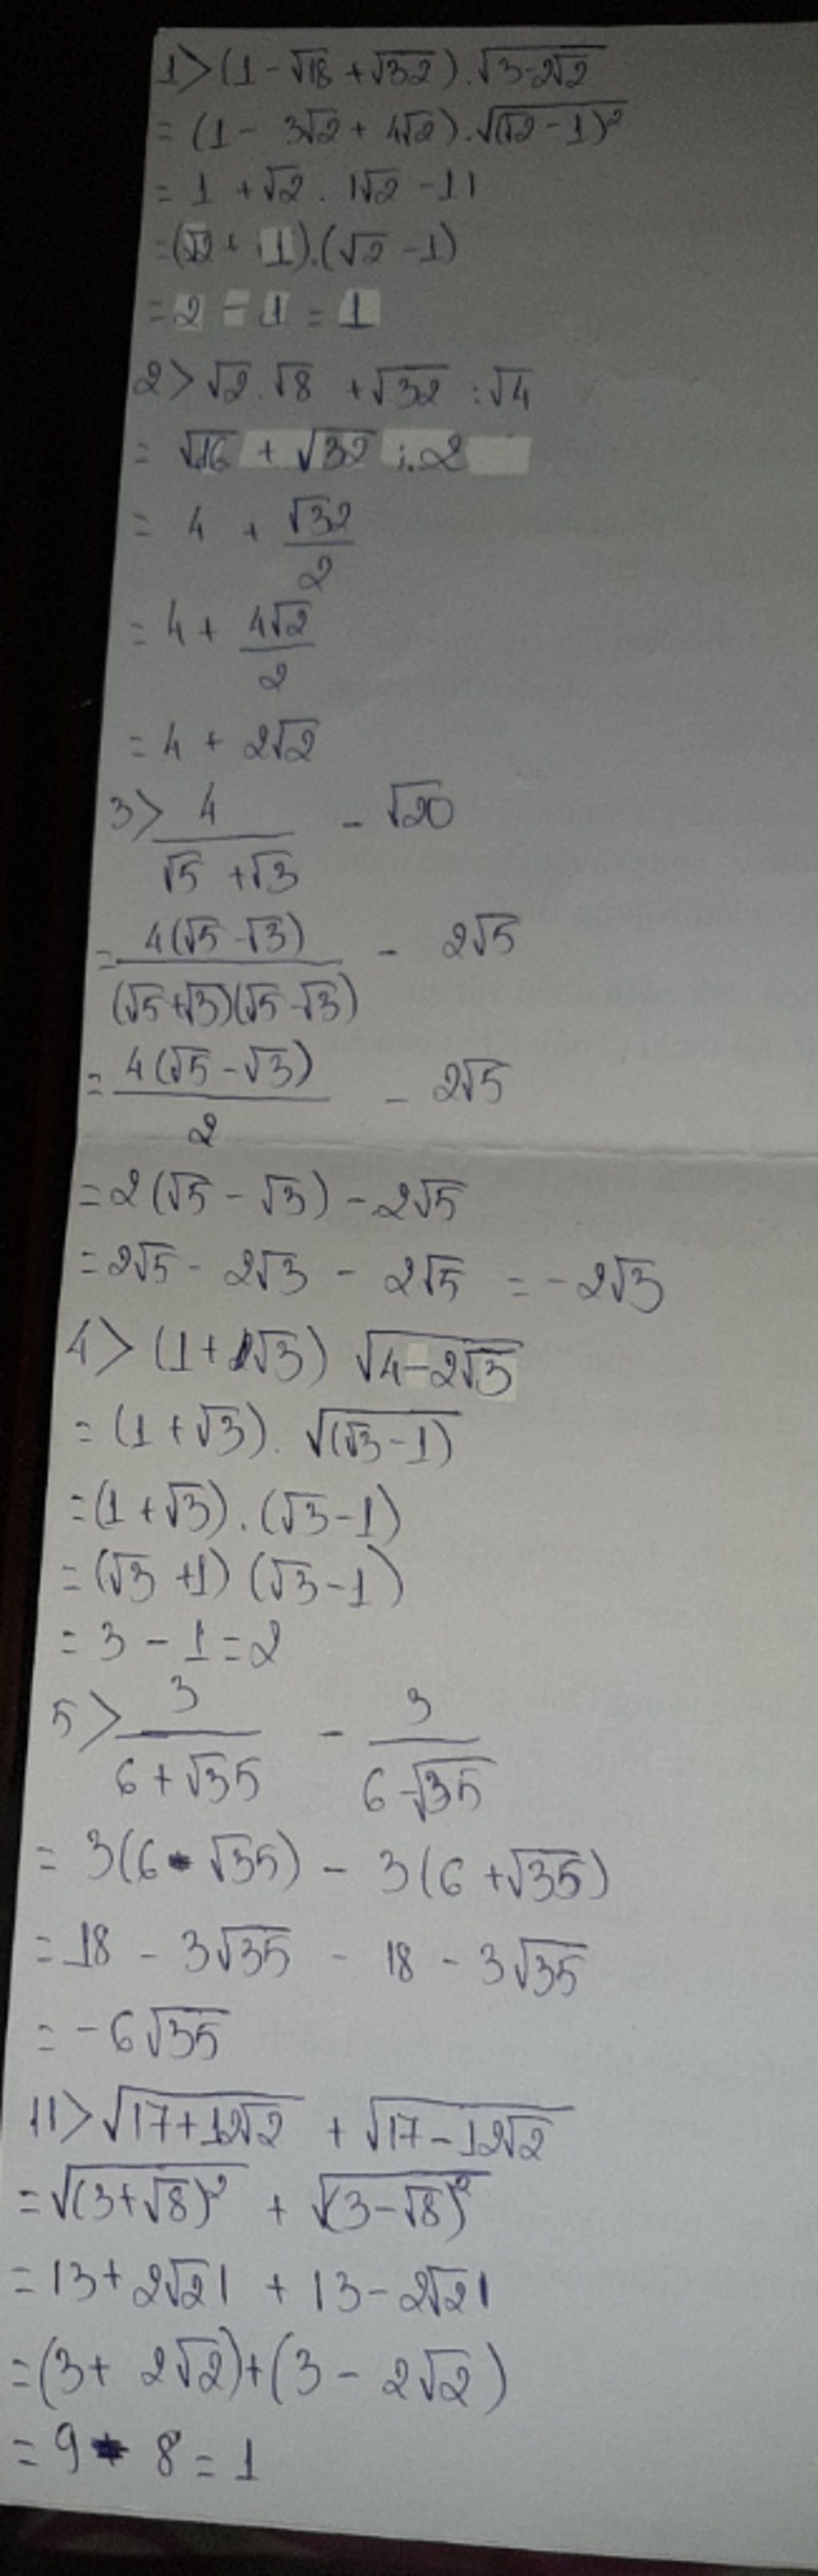 1> (1 - √18 + √32) . √(3-2√2)
= (1 - 3√2 + 4√2) . √((√2 - 1)²)
= 1 + √2 . |√2 - 1|
= (√2 + 1).(√2 - 1)
= 2 - 1 = 1
2> √2 . √8 + √32 : √4
= √16 + √32 : 2
= 4 + √32/2
= 4 + 4√2/2
= 4 + 2√2
3> 4/(√5 + √3) - √20
= 4(√5 - √3)/((√5+√3)(√5-√3)) - 2√5
= 4(√5 - √3)/2 - 2√5
= 2(√5 - √3) - 2√5
= 2√5 - 2√3 - 2√5 = -2√3
4> (1 + √3) √(4-2√3)
= (1 + √3) . √((√3 - 1))
= (1 + √3) . (√3 - 1)
= (√3 + 1) (√3 - 1)
= 3 - 1 = 2
5> 3/(6 + √35) - 3/(6-√35)
= 3(6 - √35) - 3(6 + √35)
= 18 - 3√35 - 18 - 3√35
= -6√35
11> √(17+12√2) + √(17-12√2)
= √((3+√8)²) + √((3-√8)²)
= |3+ 2√2| + |3-2√2|
= (3+ 2√2)+(3 - 2√2)
= 9 - 8 = 1